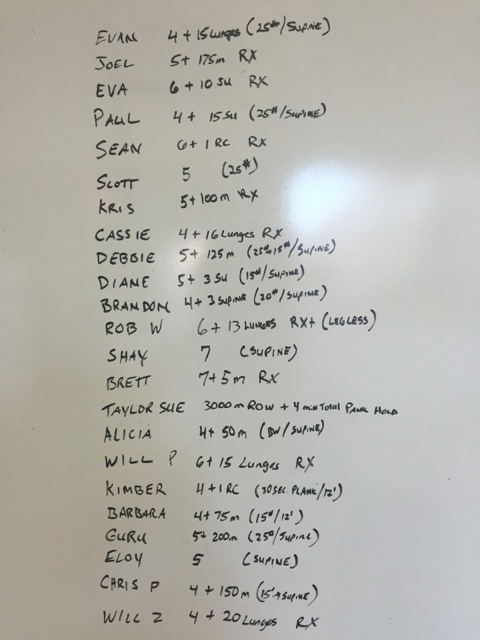 EVAN 4 + 15 Lunges (25#/SUPINE)
JOEL 5 + 175m RX
EVA 6 + 10 SU RX
PAUL 4 + 15 SU (25#/SUPINE)
SEAN 6 + 1 RC RX
SCOTT 5 (25#)
KRIS 5 + 100m RX
CASSIE 4 + 16 Lunges RX
DEBBIE 5 + 125m (25#→15#/SUPINE)
DIANE 5 + 3 SU (15#/SUPINE)
BRANDON 4 + 3 SUPINE (20#/SUPINE)
ROB W 6 + 13 LUNGES RX+ (LEGLESS)
SHAY 7 (SUPINE)
BRETT 7 + 5m RX
TAYLOR SUE 3000m ROW + 4 min Total PLANK HOLD
ALICIA 4 + 50m (BW/SUPINE)
WILL P 6 + 15 Lunges RX
KIMBER 4 + 1 RC (30 SEC. PLANK/12')
BARBARA 4 + 75m (15#/12')
GURU 5 + 200m (25#/SUPINE)
ELOY 5 (SUPINE)
CHRIS P 4 + 150m (15'→SUPINE)
WILL Z 4 + 20 Lunges RX